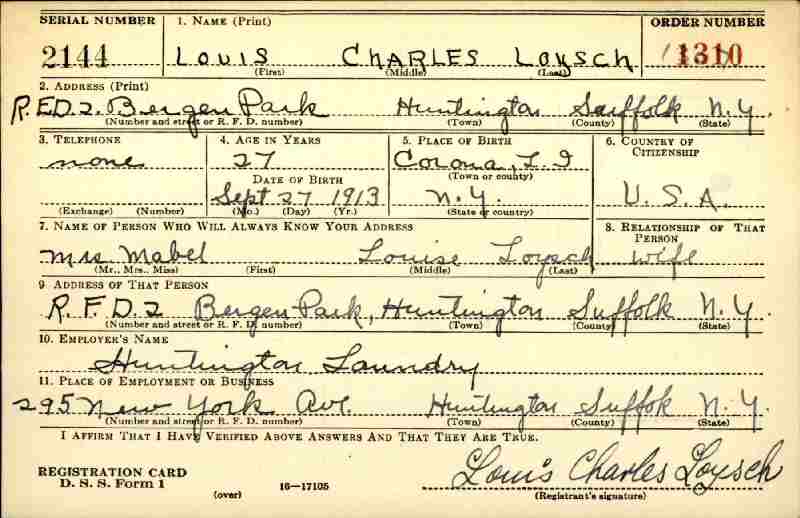 SERIAL NUMBER 1. NAME (Print) ORDER NUMBER
2144 LOUIS CHARLES LOYSCH 1310
(First) (Middle) (Last)
2. ADDRESS (Print)
R.F.D. 2. Bergen Park Huntington Suffolk N.Y.
(Number and street or R. F. D. number) (Town) (County) (State)
3. TELEPHONE 4. AGE IN YEARS 5. PLACE OF BIRTH 6. COUNTRY OF CITIZENSHIP
none 27 Corona, L.I
(Town or county)
DATE OF BIRTH
Sept 27 1913 N.Y. U.S.A.
(Exchange) (Number) (Mo.) (Day) (Yr.) (State or country)
7. NAME OF PERSON WHO WILL ALWAYS KNOW YOUR ADDRESS 8. RELATIONSHIP OF THAT PERSON
Mrs Mabel Louise Loysch wife
(Mr., Mrs., Miss) (First) (Middle) (Last)
9 ADDRESS OF THAT PERSON
R.F.D.2 Bergen Park, Huntington Suffolk N.Y
(Number and street or R. F. D. number) (Town) (County) (State)
10. EMPLOYER'S NAME
Huntington Laundry
11. PLACE OF EMPLOYMENT OR BUSINESS
295 New York Ave. Huntington Suffok N.Y.
(Number and street or R. F. D. number) (Town) (County) (State)
I AFFIRM THAT I HAVE VERIFIED ABOVE ANSWERS AND THAT THEY ARE TRUE.
REGISTRATION CARD
D. S. S. Form 1 Louis Charles Loysch
(over) 16—17105 (Registrant's signature)